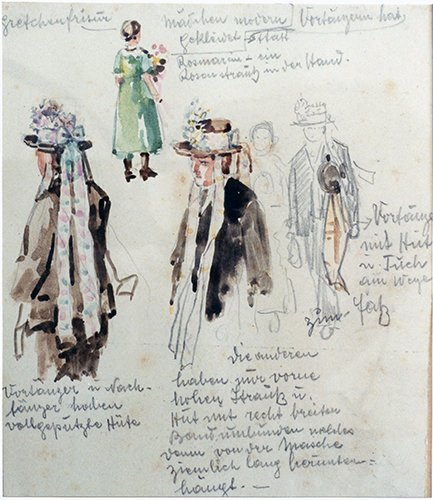 Gretchenfrisur
Mädchen modern
gekleidet statt
Rosmarin - ein
Rosenstrauß in der Hand.
Vortänzern hat
Vortänzer
mit Hut
u Tuch
am Wege
zum Faß
Vortänzer u Nach-
tänzer haben
vollgeputzte Hüte
die anderen
haben nur vorne
hohen Strauß u.
Hut mit recht breiten
Band umbunden welches
dann von der Masche
ziemlich lang herunter-
hängt. -